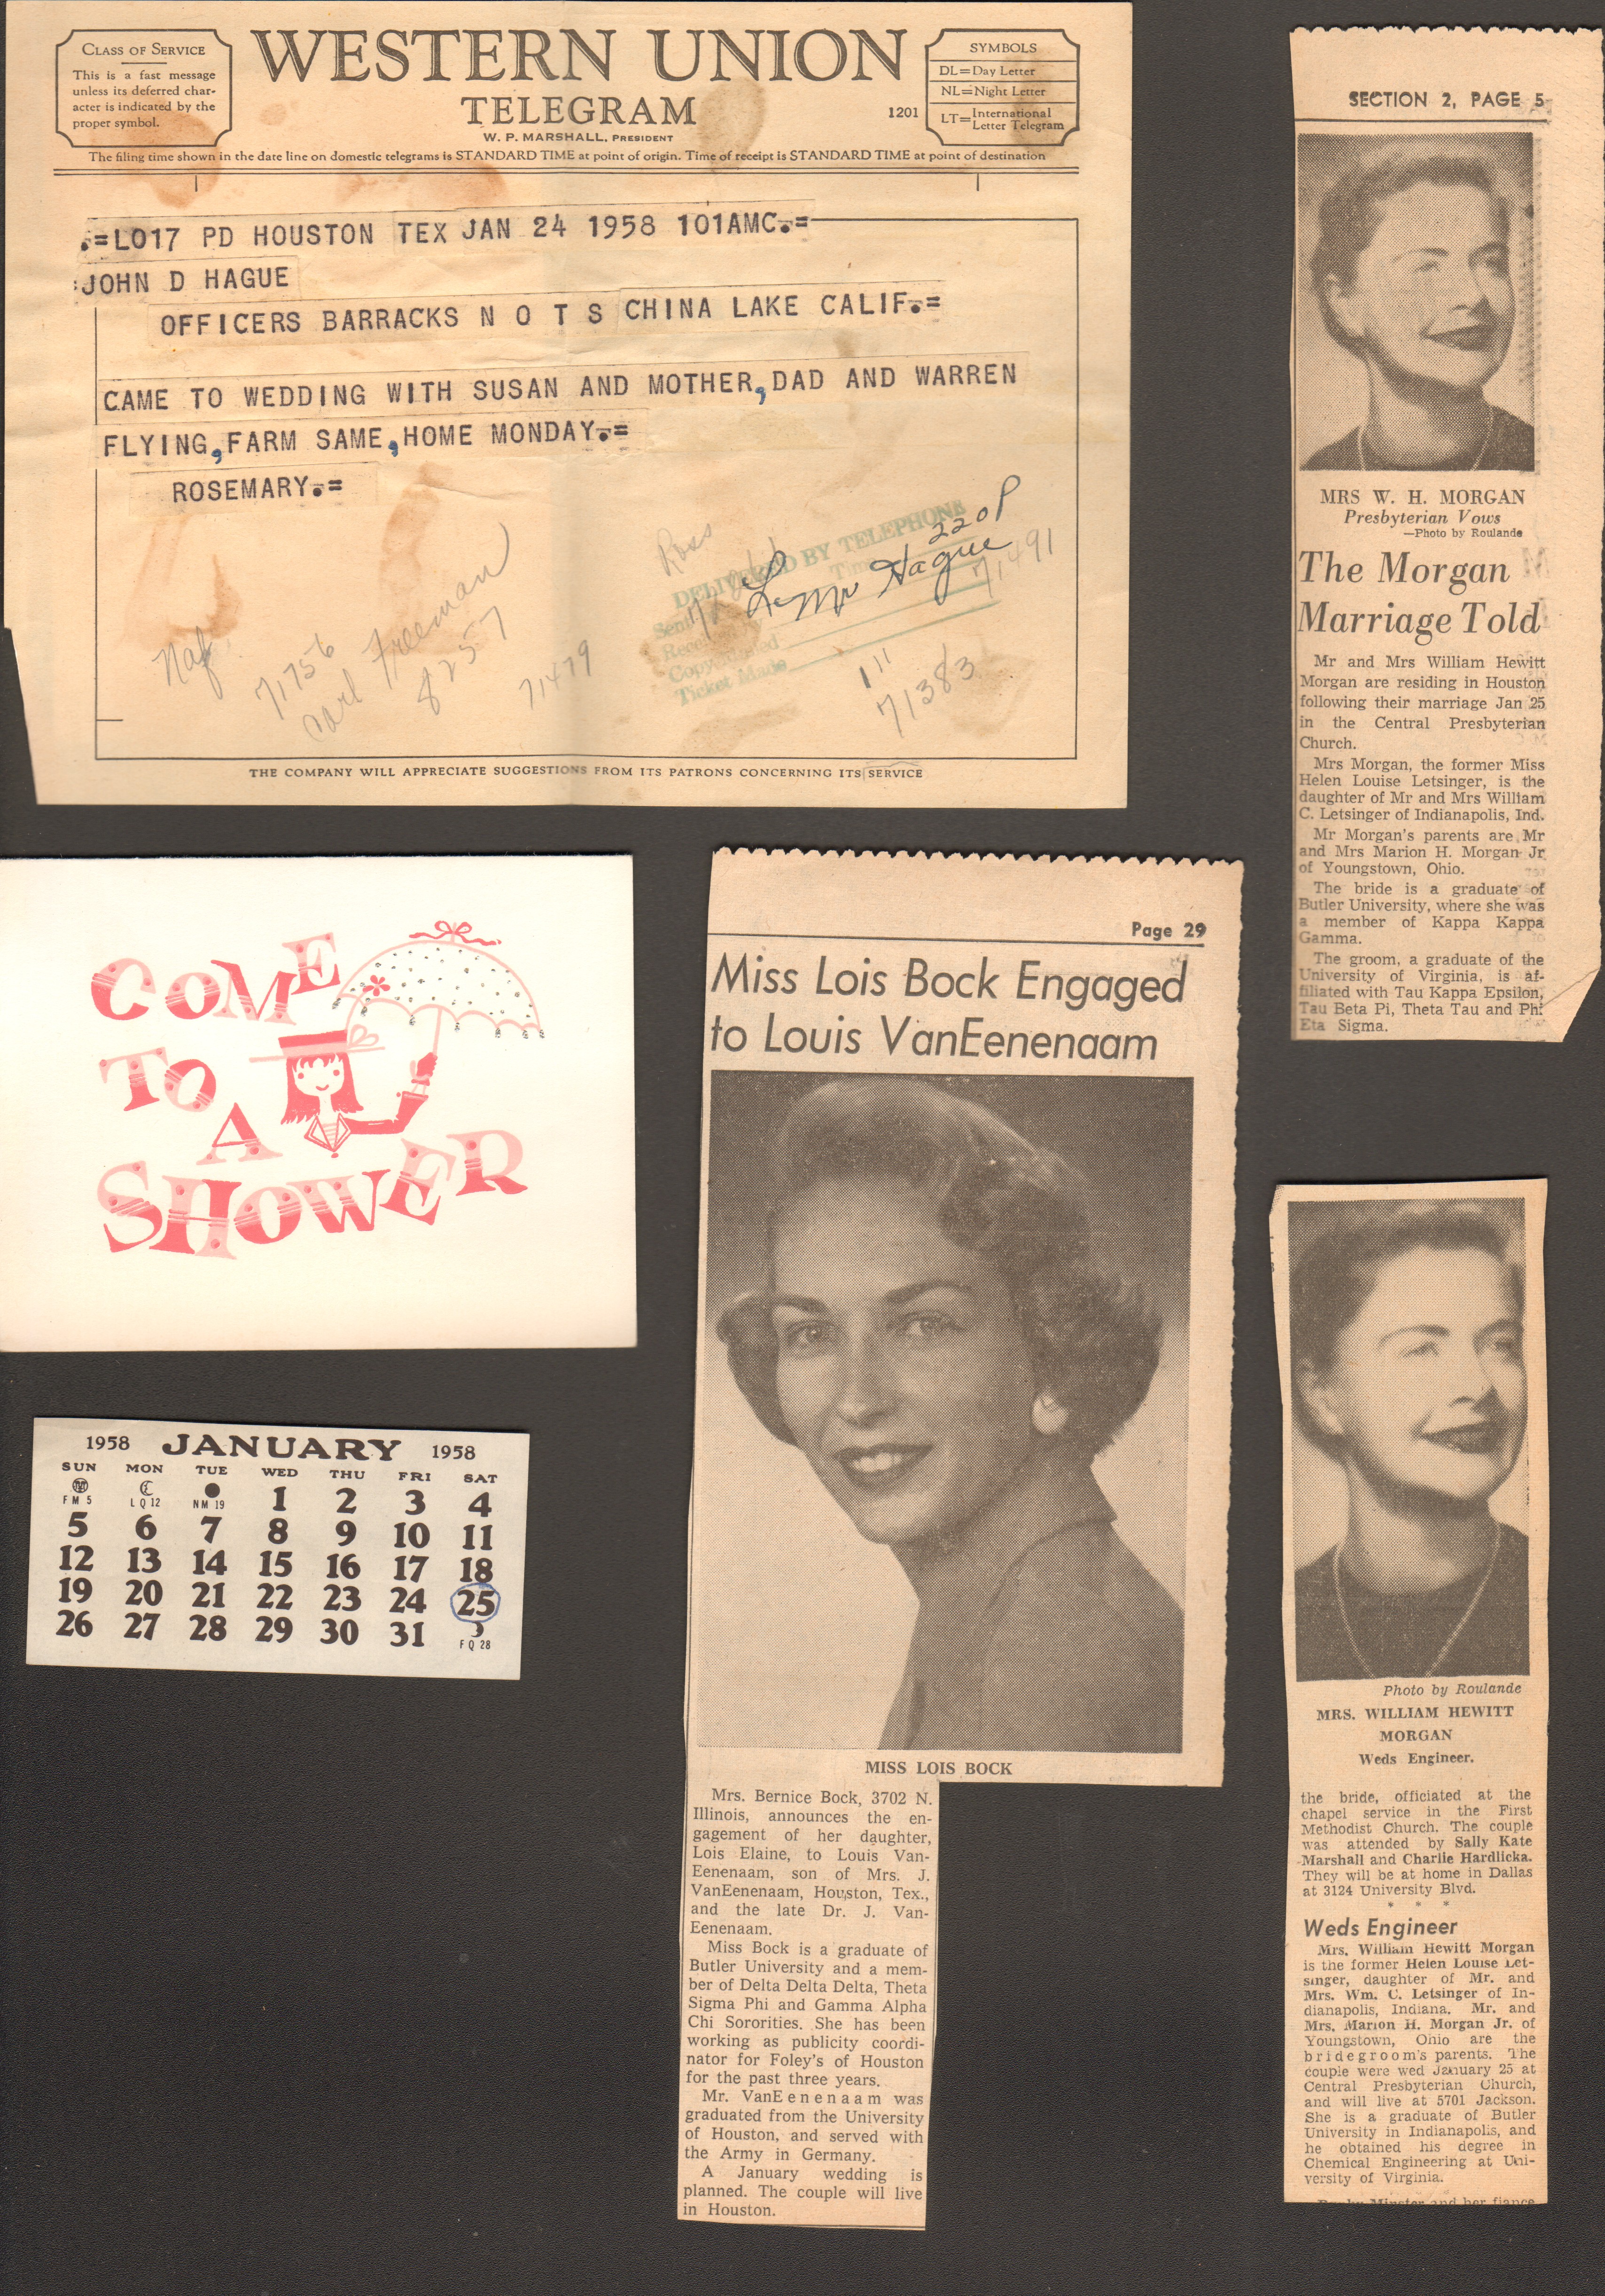 CLASS OF SERVICE
This is a fast message
unless its deferred char-
acter is indicated by the
proper symbol.
WESTERN UNION
TELEGRAM
W. P. MARSHALL, PRESIDENT
1201
SYMBOLS
DL=Day Letter
NL=Night Letter
LT=International Letter Telegram
The filing time shown in the date line on domestic telegrams is STANDARD TIME at point of origin. Time of receipt is STANDARD TIME at point of destination
.=LO17 PD HOUSTON TEX JAN 24 1958 101AMC.=
:JOHN D HAGUE
OFFICERS BARRACKS N O T S CHINA LAKE CALIF.=
CAME TO WEDDING WITH SUSAN AND MOTHER, DAD AND WARREN
FLYING, FARM SAME, HOME MONDAY.=
ROSEMARY.=
Ross
DELIVERED BY TELEPHONE
220P
Mr Hague
71491
Naf
71756
Carl Freeman
8257
71479
Copy
Ticket Made
111
71383
THE COMPANY WILL APPRECIATE SUGGESTIONS FROM ITS PATRONS CONCERNING ITS SERVICE
SECTION 2, PAGE 5
MRS W. H. MORGAN
Presbyterian Vows
—Photo by Roulande
The Morgan
Marriage Told
Mr and Mrs William Hewitt
Morgan are residing in Houston
following their marriage Jan 25
in the Central Presbyterian
Church.
Mrs Morgan, the former Miss
Helen Louise Letsinger, is the
daughter of Mr and Mrs William
C. Letsinger of Indianapolis, Ind.
Mr Morgan's parents are Mr
and Mrs Marion H. Morgan Jr
of Youngstown, Ohio.
The bride is a graduate of
Butler University, where she was
a member of Kappa Kappa
Gamma.
The groom, a graduate of the
University of Virginia, is af-
filiated with Tau Kappa Epsilon,
Tau Beta Pi, Theta Tau and Phi
Eta Sigma.
COME
TO
A
SHOWER
1958 JANUARY 1958
SUN MON TUE WED THU FRI SAT
FM 5 LQ 12 NM 19 1 2 3 4
5 6 7 8 9 10 11
12 13 14 15 16 17 18
19 20 21 22 23 24 25
26 27 28 29 30 31 FQ 28
Page 29
Miss Lois Bock Engaged
to Louis VanEenenaam
MISS LOIS BOCK
Mrs. Bernice Bock, 3702 N.
Illinois, announces the en-
gagement of her daughter,
Lois Elaine, to Louis Van-
Eenenaam, son of Mrs. J.
VanEenenaam, Houston, Tex.,
and the late Dr. J. Van-
Eenenaam.
Miss Bock is a graduate of
Butler University and a mem-
ber of Delta Delta Delta, Theta
Sigma Phi and Gamma Alpha
Chi Sororities. She has been
working as publicity coordi-
nator for Foley's of Houston
for the past three years.
Mr. VanEenenaam was
graduated from the University
of Houston, and served with
the Army in Germany.
A January wedding is
planned. The couple will live
in Houston.
Photo by Roulande
MRS. WILLIAM HEWITT
MORGAN
Weds Engineer.
the bride, officiated at the
chapel service in the First
Methodist Church. The couple
was attended by Sally Kate
Marshall and Charlie Hardlicka.
They will be at home in Dallas
at 3124 University Blvd.
* * *
Weds Engineer
Mrs. William Hewitt Morgan
is the former Helen Louise Let-
singer, daughter of Mr. and
Mrs. Wm. C. Letsinger of In-
dianapolis, Indiana. Mr. and
Mrs. Marion H. Morgan Jr. of
Youngstown, Ohio are the
bridegroom's parents. The
couple were wed January 25 at
Central Presbyterian Church,
and will live at 5701 Jackson.
She is a graduate of Butler
University in Indianapolis, and
he obtained his degree in
Chemical Engineering at Uni-
versity of Virginia.
Minster and her fiance